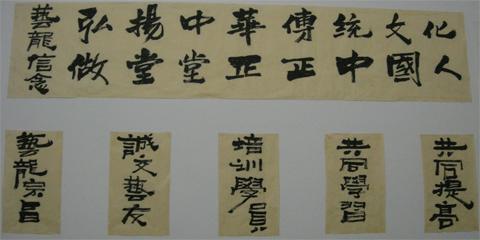 藝龍信念
弘揚中華傳统文化
做堂堂正正中國人
藝龍宗旨
誠交藝友
培训學員
共同學習
共同提高